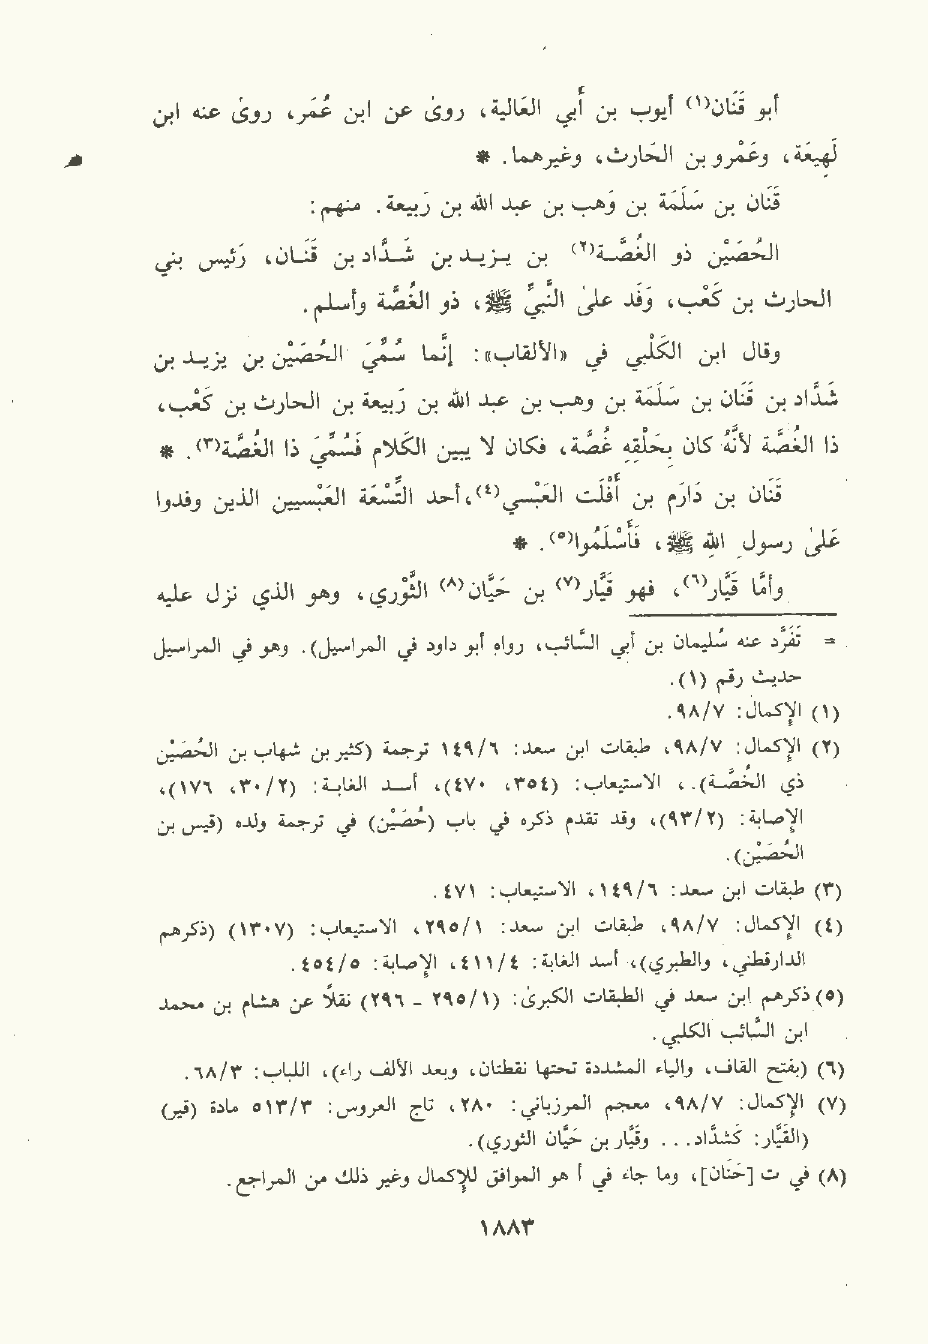 أبو قَنَان(١) أيوب بن أَبي العَالية، روىٰ عن ابن عُمَر، روىٰ عنه ابن
لَهِيعَة، وعَمْرو بن الحَارث، وغيرهما. *
قَنَان بن سَلَمَة بن وَهب بن عبد الله بن رَبيعة. منهم:
الحُصَيْن ذو الغُصَّـة(٢) بن يـزيـد بن شَـدَّاد بن قَنَـان، رَئيس بني
الحارث بن كَعْب، وَفَد علىٰ النَّبيِّ ﷺ، ذو الغُصَّة وأسلم.
وقال ابن الكَلْبي في «الألقاب»: إنَّما سُمِّيَ الحُصَيْن بن يزيـد بن
شَدَّاد بن قَنَان بن سَلَمَة بن وهب بن عبد الله بن رَبيعة بن الحارث بن كَعْب،
ذا الغُصَّة لأنَّهُ كان بِحَلْقِهِ غُصَّة، فكان لا يبين الكَلام فَسُمِّيَ ذا الغُصَّة(٣). *
قَنَان بن دَارَم بن أَفْلَت العَبْسي(٤)، أحد التِّسْعَة العَبْسيين الذين وفدوا
علىٰ رسول اللهِ ﷺ، فَأَسْلَمُوا(٥). *
وأمَّا قَيَّار(٦)، فهو قَيَّار(٧) بن حَيَّان(٨) الثَّوْري، وهو الذي نزل عليه
= تَفَرَّد عنه سُليمان بن أبي السَّائب، ورواه أبو داود في المراسيل). وهو في المراسيل
حديث رقم (١).
(١) الإكمال: ٩٨/٧.
(٢) الإكمال: ٩٨/٧، طبقات ابن سعد: ١٤٩/٦ ترجمة (كثير بن شهاب بن الحُصَيْن
ذي الغُصَّـة).، الاستيعاب: (٣٥٤، ٤٧٠)، أسـد الغابـة: (٣٠/٢، ١٧٦)،
الإصابة: (٩٣/٢)، وقد تقدم ذكره في باب (حُصَيْن) في ترجمة ولده (قيس بن
الحُصَيْن).
(٣) طبقات ابن سعد: ١٤٩/٦، الاستيعاب: ٤٧١.
(٤) الإكمال: ٩٨/٧، طبقات ابن سعد: ٢٩٥/١، الاستيعاب: (١٣٠٧) (ذكرهم
الدارقطني، والطبري)، أسد الغابة: ٤١١/٤، الإصابة: ٤٥٤/٥.
(٥) ذكرهم ابن سعد في الطبقات الكبرىٰ: (٢٩٥/١ - ٢٩٦) نقلاً عن هشام بن محمد
ابن السَّائب الكلبي.
(٦) (بفتح القاف، والياء المشددة تحتها نقطتان، وبعد الألف راء)، اللباب: ٦٨/٣.
(٧) الإكمال: ٩٨/٧، معجم المرزباني: ٢٨٠، تاج العروس: ٥١٣/٣ مادة (قير)
(القَيَّار: كَشدَّاد... وقَيَّار بن حَيَّان الثوري).
(٨) في ت [حَنَان]، وما جاء في أ هو الموافق للإكمال وغير ذلك من المراجع.
١٨٨٣